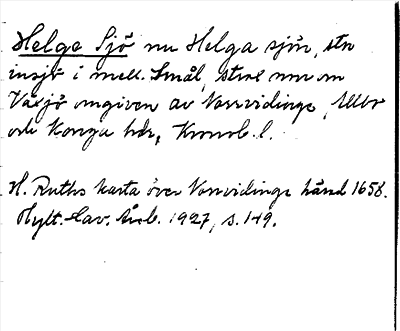 Helge Sjö nu Helga sjön, stn
insjö i mell. Smål, strax nnv om
Växjö omgiven av Norrvidinge, Allbo
och Konga hdr, Kronob. l.
H. Ruths karta över Norrvidinge härad 1658.
Hylt.-Cav. Årsb. 1927, s. 149.